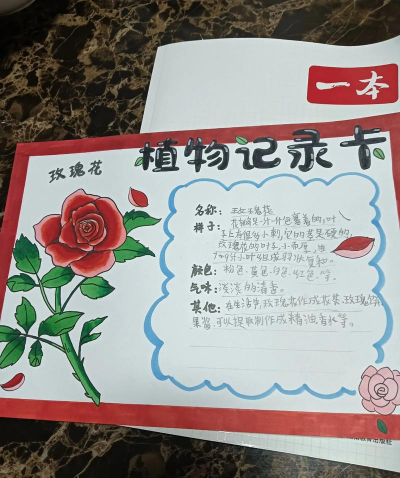 一本
植物记录卡
玫瑰花
名称：玫瑰花
样子：花瓣是一片一片包裹着的，叶
上有很多小刺，它的茎是硬的，
玫瑰花的叶子，小而厚，由
7~9片小叶组成羽状复叶
颜色：粉色·黄色·白色·红色·等。
气味：浅淡的清香。
其他：在生活中，玫瑰花作成花茶·玫瑰
果酱，可以提取制作成精油香水等。
教育出版社